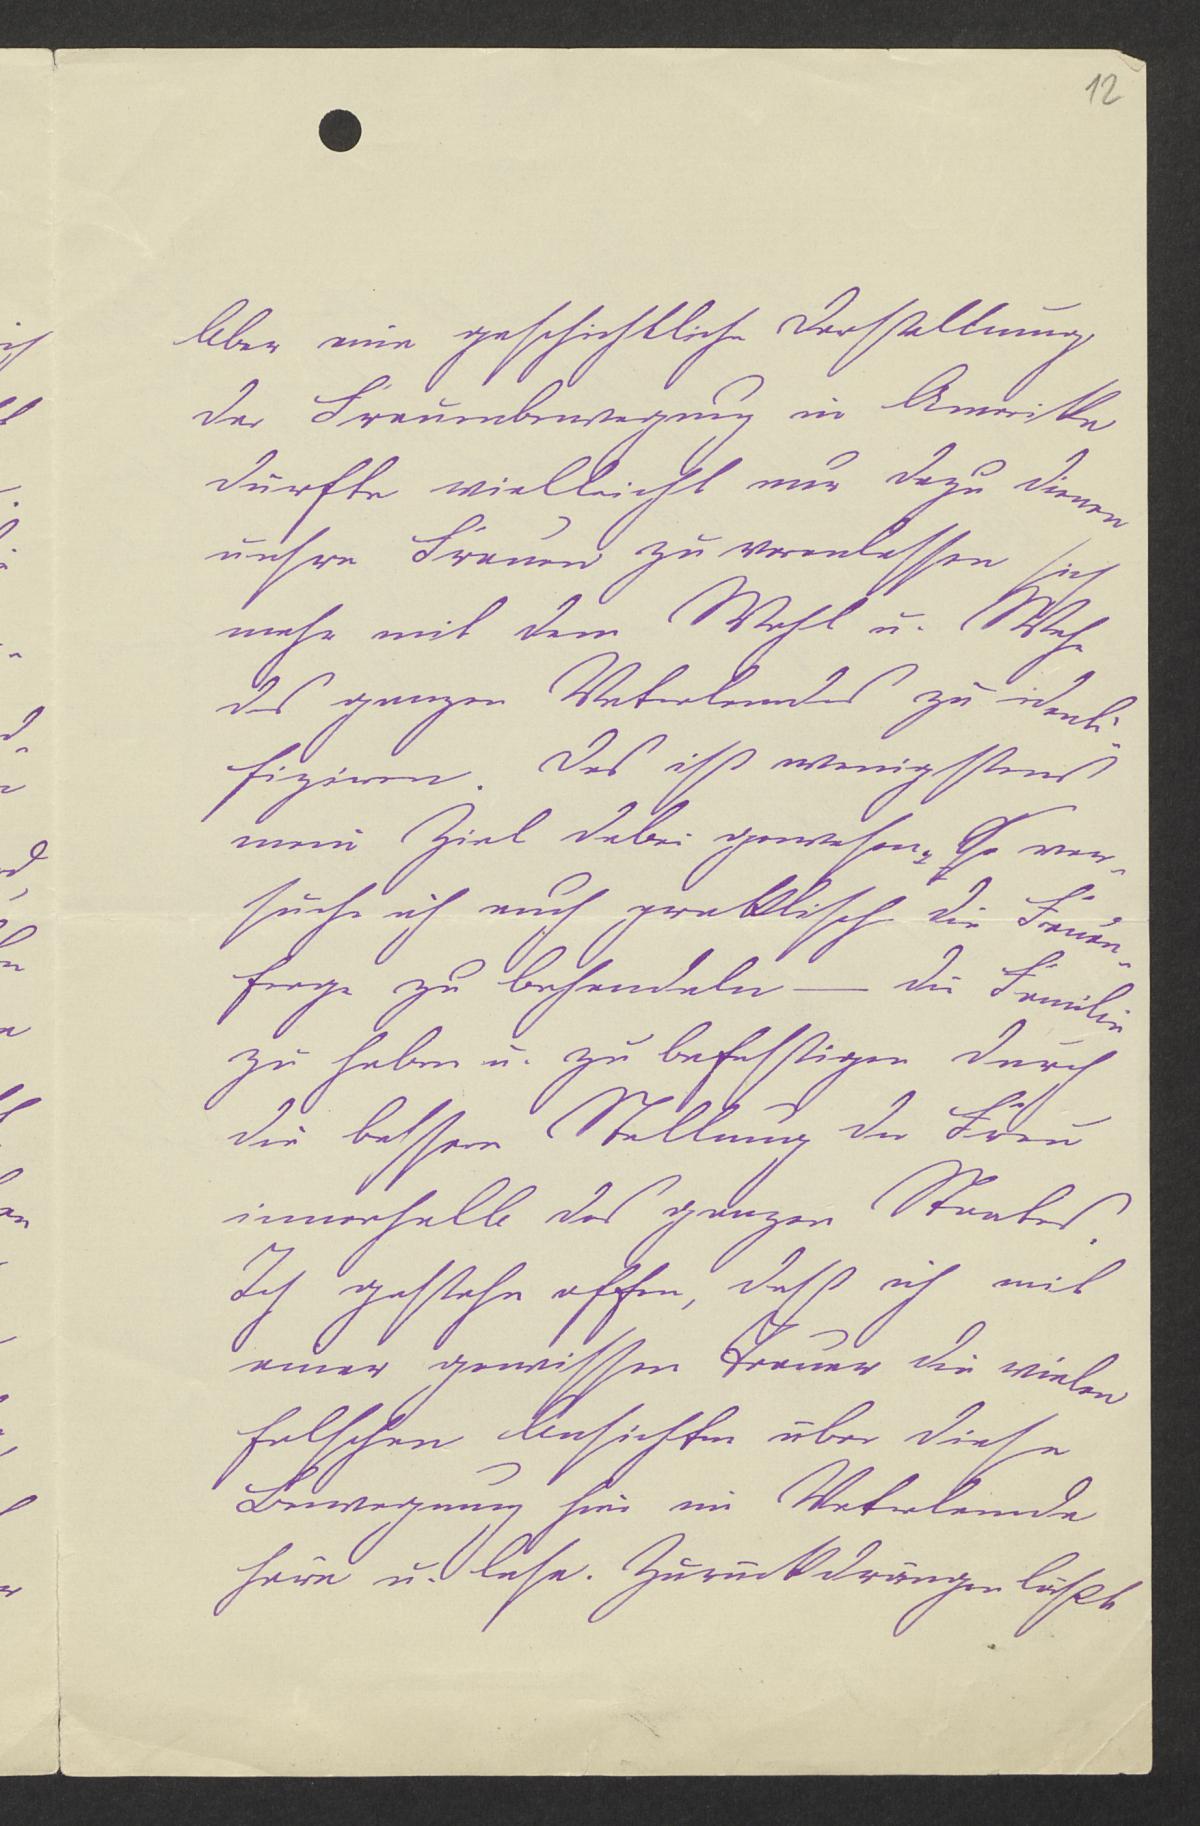 12
Aber eine geschichtliche Darstellung
der Frauenbewegung in Amerika
dürfte vielleicht nur dazu dienen
unsre Frauen zu veranlassen sich
mehr mit dem Wohl u. Wehe
des ganzen Vaterlandes zu identi-
fiziren. Das ist wenigstens
mein Ziel dabei gewesen. So ver-
suche ich auch praktisch die Frauen-
frage zu behandeln — die Familie
zu heben u. zu befestigen durch
die bessere Stellung der Frau
innerhalb des ganzen Staates.
Ich gestehe offen, daß ich mit
einer gewissen Trauer die vielen
falschen Ansichten über diese
Bewegung hier im Vaterlande
höre u. lese. Zurückdrängen läßt